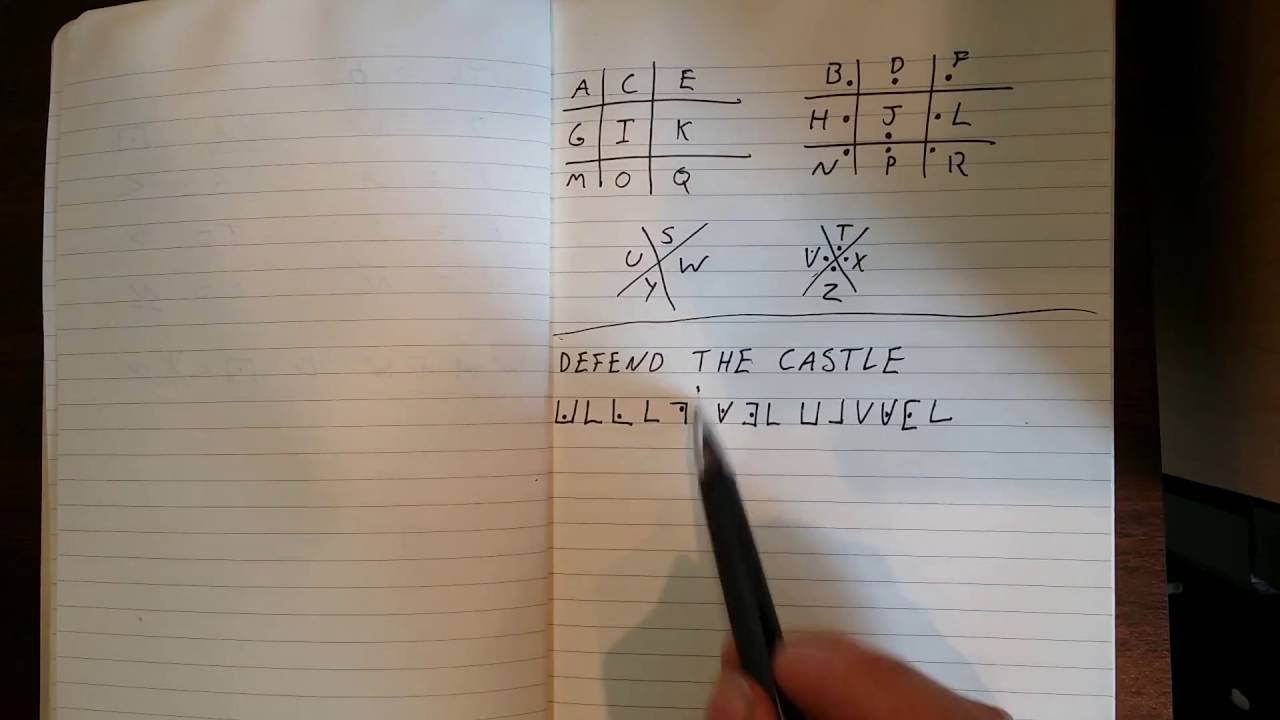 A C E B D F
G I K H J L
M O Q N P R
S T
U W V X
Y Z
DEFEND THE CASTLE